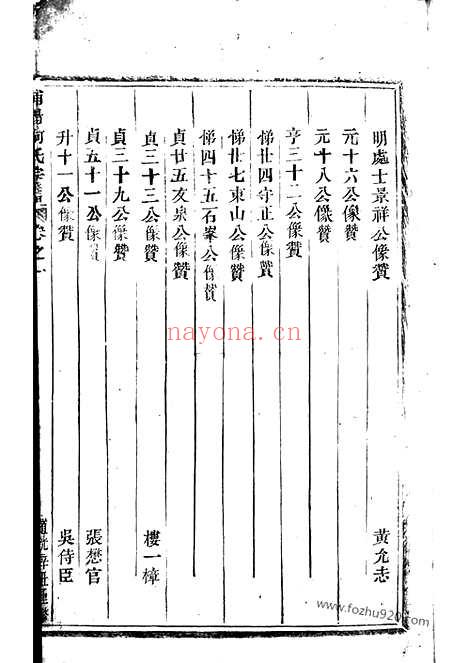 明處士景祥公像贊 黃允志
元十六公像贊
元十八公像贊
亨三十二公像贊
悌廿四守正公像贊
悌廿七東山公像贊
悌四十五石峯公像贊
貞廿五友泉公像贊
貞三十三公像贊 樓一樟
貞三十九公像贊
貞五十一公像贊 張懋官
升十一公像贊 吳侍臣
nayona.cn
www.fozhu920.com